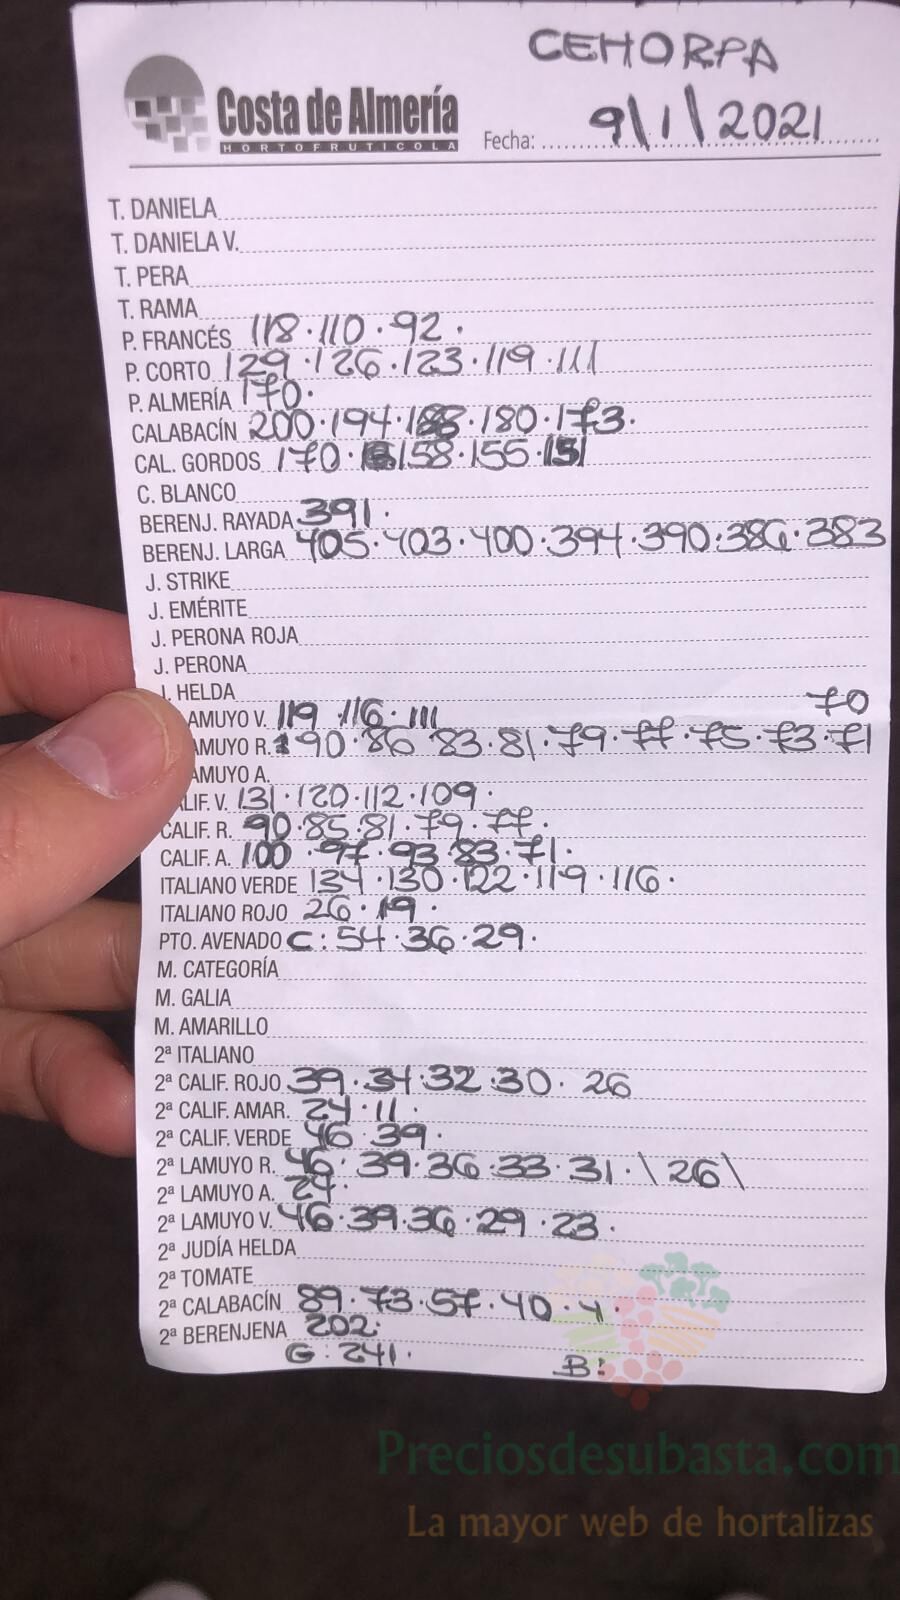 CEHORPA
Costa de Almería
HORTOFRUTICOLA
Fecha: 9/1/2021
T. DANIELA
T. DANIELA V.
T. PERA
T. RAMA
P. FRANCÉS 118·110·92·
P. CORTO 129·126·123·119·111
P. ALMERÍA 170·
CALABACÍN 200·194·188·180·173·
CAL. GORDOS 170· 158·155·151
C. BLANCO
BERENJ. RAYADA 391·
BERENJ. LARGA 405·403·400·394·390·386·383
J. STRIKE
J. EMÉRITE
J. PERONA ROJA
J. PERONA
J. HELDA
AMUYO V. 119 116·111
70
AMUYO R. 90·86 83·81·79·77·75·73·71
AMUYO A.
LIF. V. 131·120·112·109·
CALIF. R. 90·85·81·79·77·
CALIF. A. 100·97·93·83·71·
ITALIANO VERDE 134·130·122·119·116·
ITALIANO ROJO 26·19·
PTO. AVENADO C: 54·36·29·
M. CATEGORÍA
M. GALIA
M. AMARILLO
2ª ITALIANO
2ª CALIF. ROJO 39·34·32·30· 26
2ª CALIF. AMAR. 24·11·
2ª CALIF. VERDE 46 39·
2ª LAMUYO R. 46· 39·36·33·31·\26\
2ª LAMUYO A. 24·
2ª LAMUYO V. 46·39·36·29·23·
2ª JUDÍA HELDA
2ª TOMATE
2ª CALABACÍN 89·73·57·40·4·
2ª BERENJENA 202·
G: 241· B:
Preciosdesubasta.com
La mayor web de hortalizas